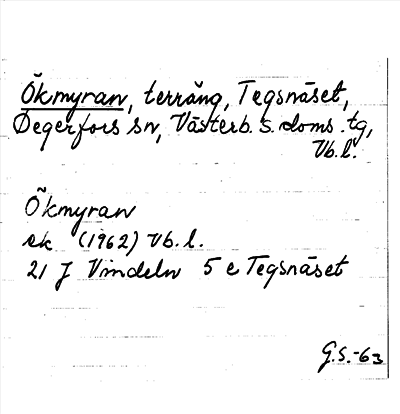 Ökmyran, terräng, Tegsnäset,
Degerfors sn, Västerb. s. doms. tg,
Vb.l.
Ökmyran
ek (1962) Vb.l.
21 J Vindeln 5 e Tegsnäset
G.S.-63